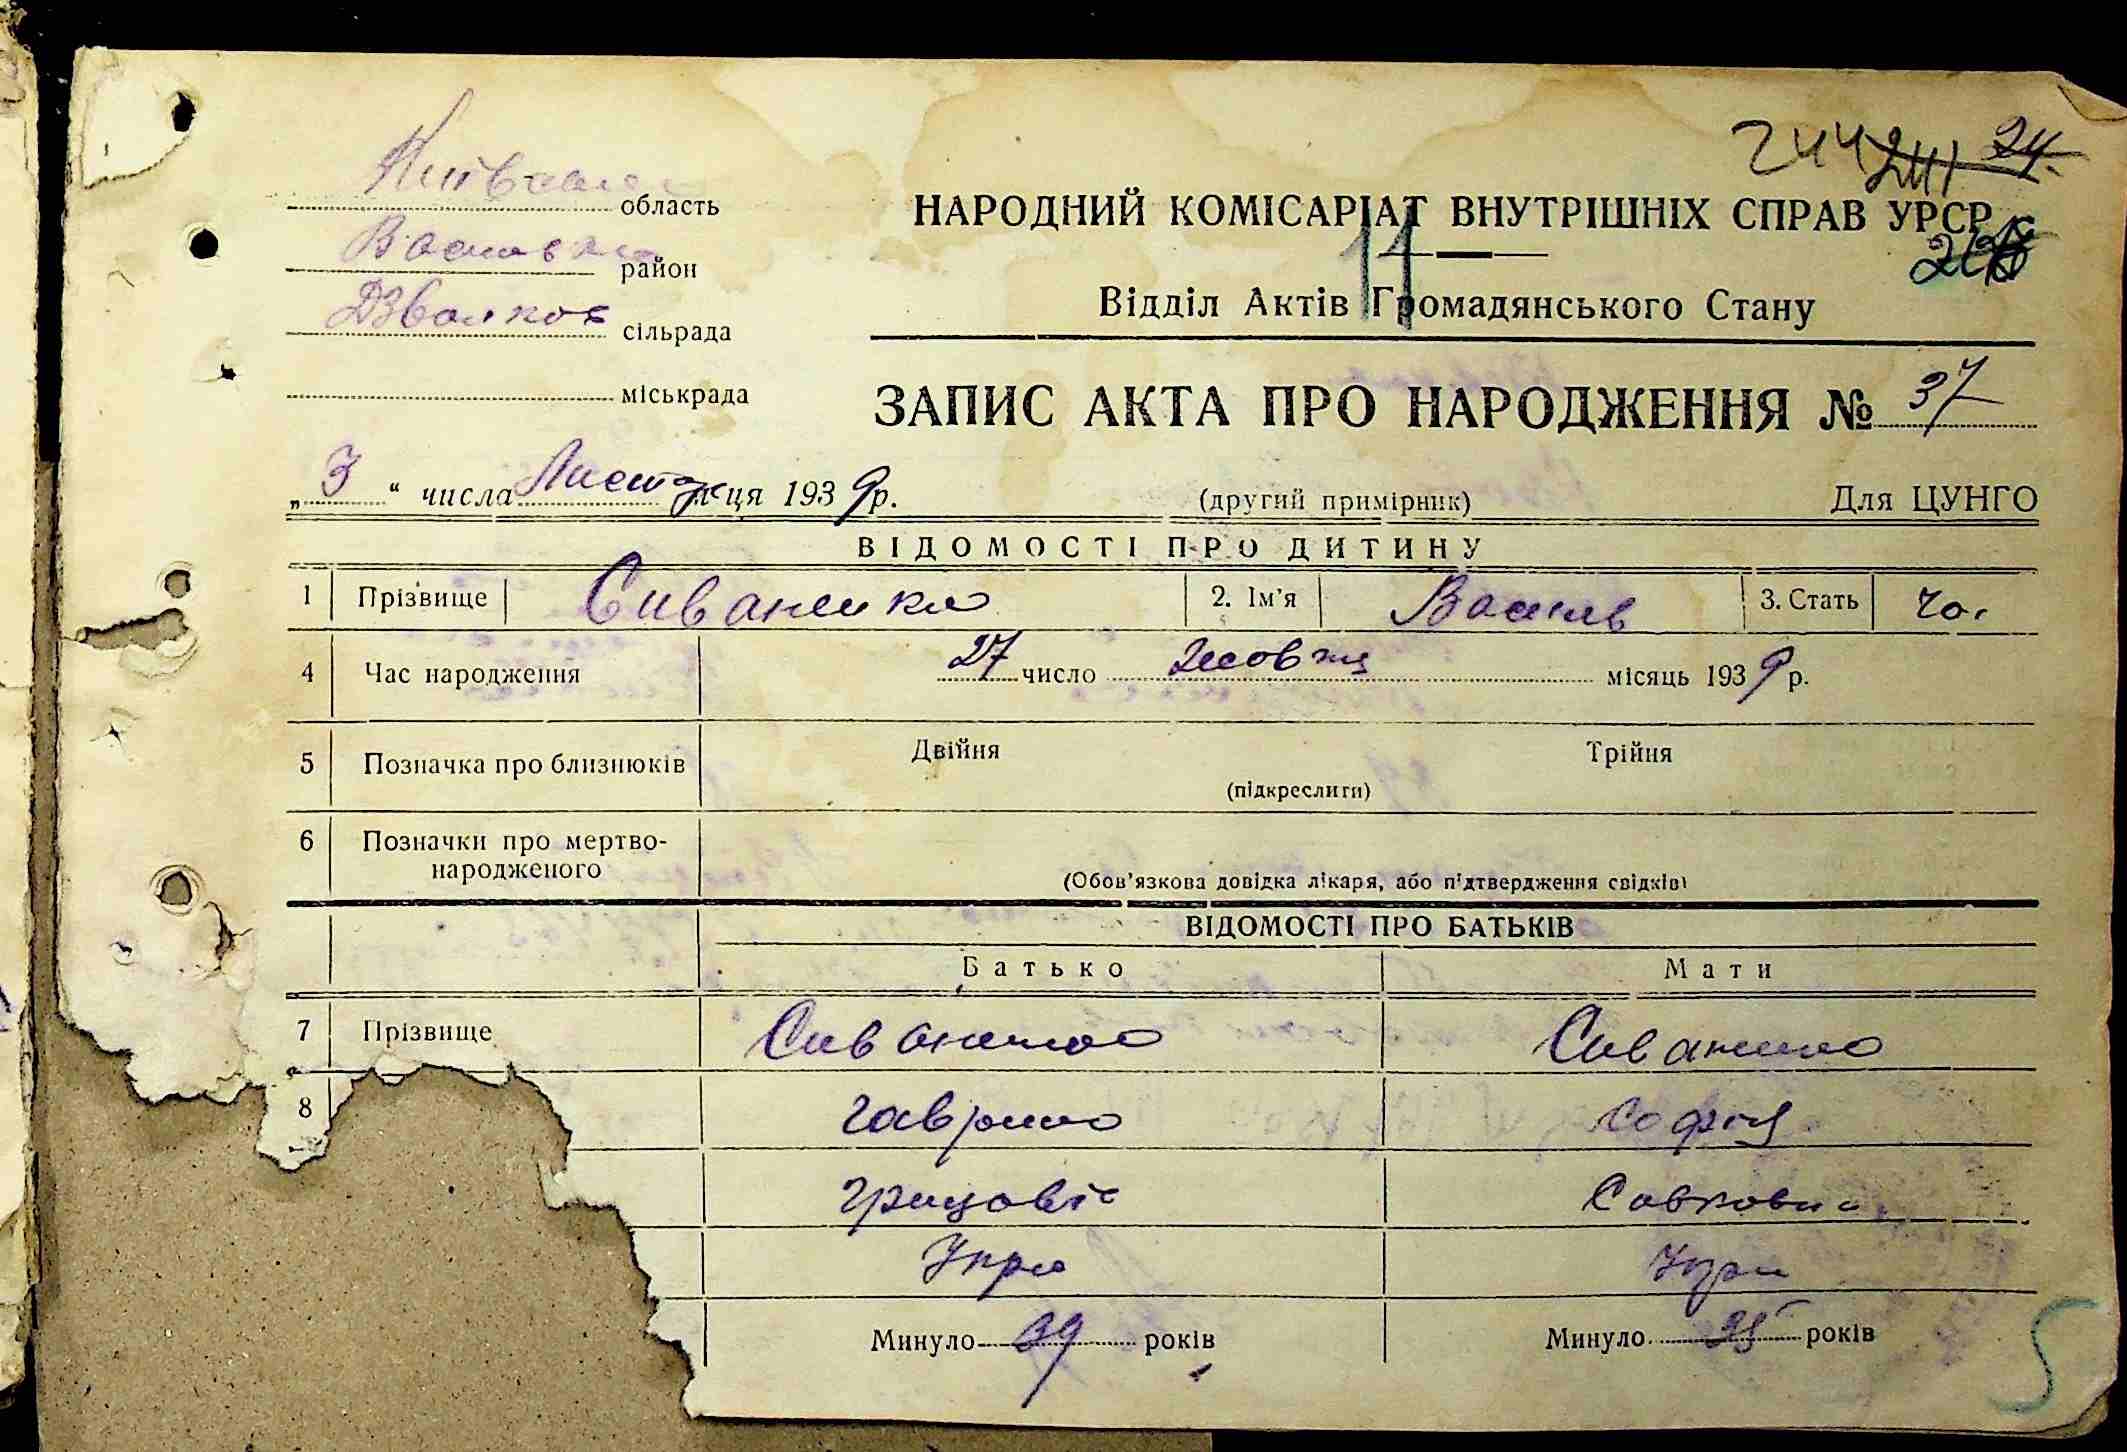 244 241 24.
Київська область
НАРОДНИЙ КОМІСАРІАТ ВНУТРІШНІХ СПРАВ УРСР
район
11
Відділ Актів Громадянського Стану
сільрада
міськрада
ЗАПИС АКТА ПРО НАРОДЖЕННЯ № 37
„ 3 “ числа Листоп м-ця 1939 р. (другий примірник) Для ЦУНГО
ВІДОМОСТІ ПРО ДИТИНУ
1 Прізвище Сиваненко 2. Ім'я Василь 3. Стать чо.
4 Час народження 27 число Жовтц місяць 1939 р.
5 Позначка про близнюків Двійня Трійня
(підкреслити)
6 Позначки про мертво-
народженого
(Обов'язкова довідка лікаря, або підтвердження свідків)
ВІДОМОСТІ ПРО БАТЬКІВ
Батько Мати
7 Прізвище Сиваненко Сиваненко
8 Гаврило Софія
Грицовіч Савковна
Укра Укра
Минуло 39 років Минуло 35 років
5